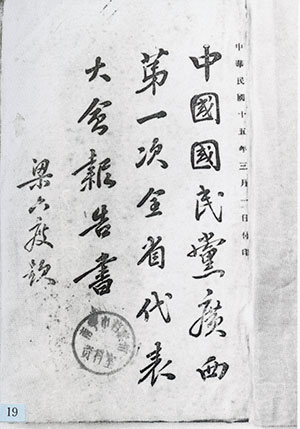 中華民國十五年三月一日付印
中國國民黨廣西
第一次全省代表
大会報告書
梁六度題
19